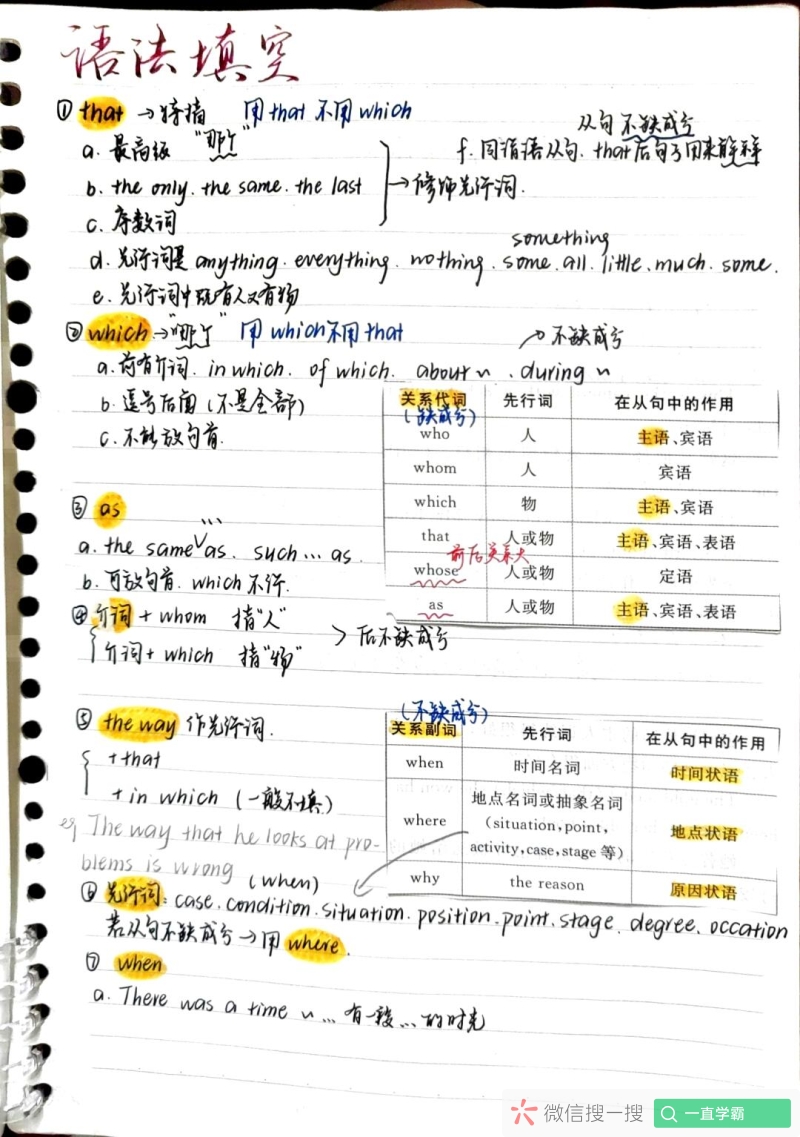 语法填空
① that → 特指 用 that 不用 which
a. 最高级 "那个"
从句不缺成分
f. 同谓语从句. that后句子用来解释
b. the only. the same. the last → 修饰先行词.
c. 序数词
something
d. 先行词是 anything. everything. nothing. some. all. little. much. some.
e. 先行词中既有人又有物
② which → "那个" 用 which 不用 that
→ 不缺成分
a. 前有介词. in which. of which. about ~ . during ~
b. 逗号后面 (不是全部)
c. 不能放句首.
关系代词 先行词 在从句中的作用
(缺成分)
who 人 主语、宾语
whom 人 宾语
which 物 主语、宾语
that 人或物 主语、宾语、表语
前后关系大
whose 人或物 定语
as 人或物 主语、宾语、表语
③ as
a. the same ... as. such ... as.
b. 可放句首. which 不许.
④ 介词 + whom 指"人"
介词 + which 指"物"
> 后不缺成分
⑤ the way 作先行词.
+ that
+ in which (一般不填)
eg The way that he looks at pro-
blems is wrong
(不缺成分)
关系副词 先行词 在从句中的作用
when 时间名词 时间状语
where 地点名词或抽象名词 地点状语
(situation,point,
activity,case,stage 等)
why the reason 原因状语
(when)
⑥ 先行词: case. condition. situation. position. point. stage. degree. occation
若从句不缺成分 → 用 where.
⑦ when
a. There was a time ~ ... 有一段 ... 的时光
微信搜一搜 一直学霸